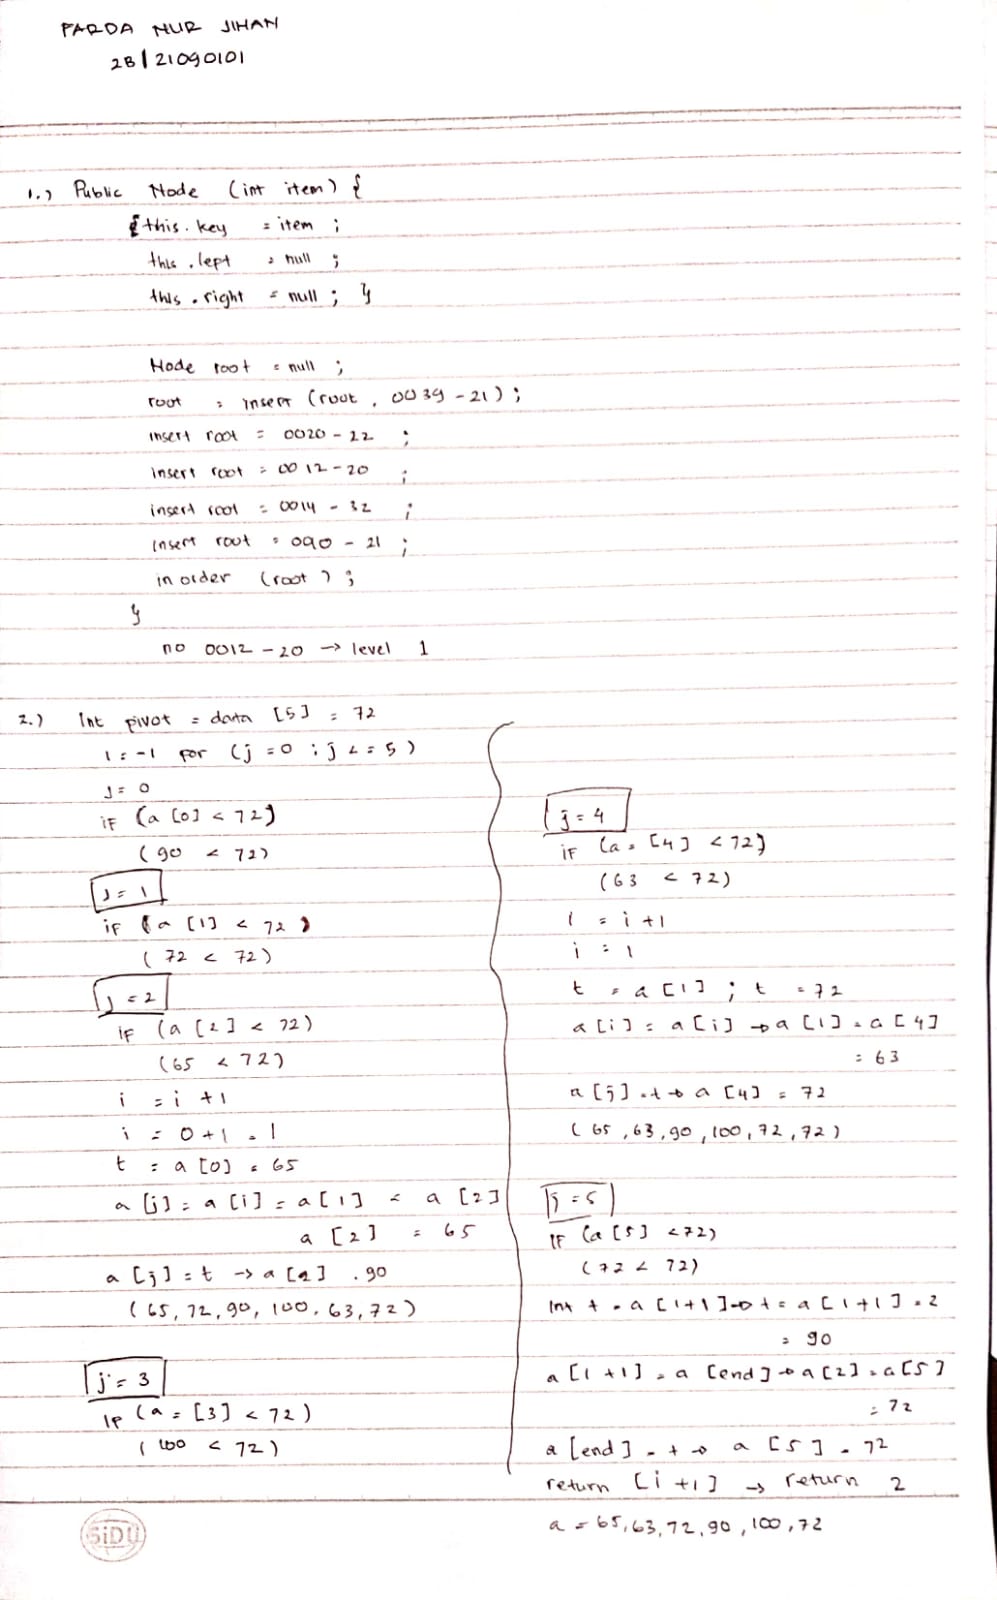 FARDA NUR JIHAN
2B | 21090101
1.) Public Node (int item) {
{ this. key = item ;
this . left = null ;
this . right = null ; }
Node root = null ;
root = insert (root , 0039 - 21) ;
insert root = 0020 - 22 ;
insert root = 0012 - 20 ;
insert root = 0014 - 32 ;
insert root = 090 - 21 ;
in order (root) ;
}
no 0012 - 20 → level 1
2.) Int pivot = data [5] = 72
i = -1 for (j = 0 ; j <= 5)
J = 0
if (a [0] < 72)
(90 < 72)
J = 1
if (a [1] < 72)
(72 < 72)
j = 2
if (a [2] < 72)
(65 < 72)
i = i + 1
i = 0 + 1 = 1
t = a [0] = 65
a [j] = a [i] = a [1] = a [2]
a [2] = 65
a [j] = t → a [2] . 90
(65, 72, 90, 100, 63, 72)
j = 3
if (a = [3] < 72)
(100 < 72)
j = 4
if (a = [4] < 72)
(63 < 72)
i = i + 1
i = 1
t = a [1] ; t = 72
a [i] = a [j] → a [1] = a [4]
= 63
a [j] = t → a [4] = 72
(65, 63, 90, 100, 72, 72)
j = 5
If (a [5] < 72)
(72 < 72)
Int t = a [1+1] → t = a [1+1] = 2
= 90
a [1+1] = a [end] → a [2] = a [5]
= 72
a [end] = t → a [5] = 72
return [i +1] → return 2
a = 65, 63, 72, 90, 100, 72
SiDU